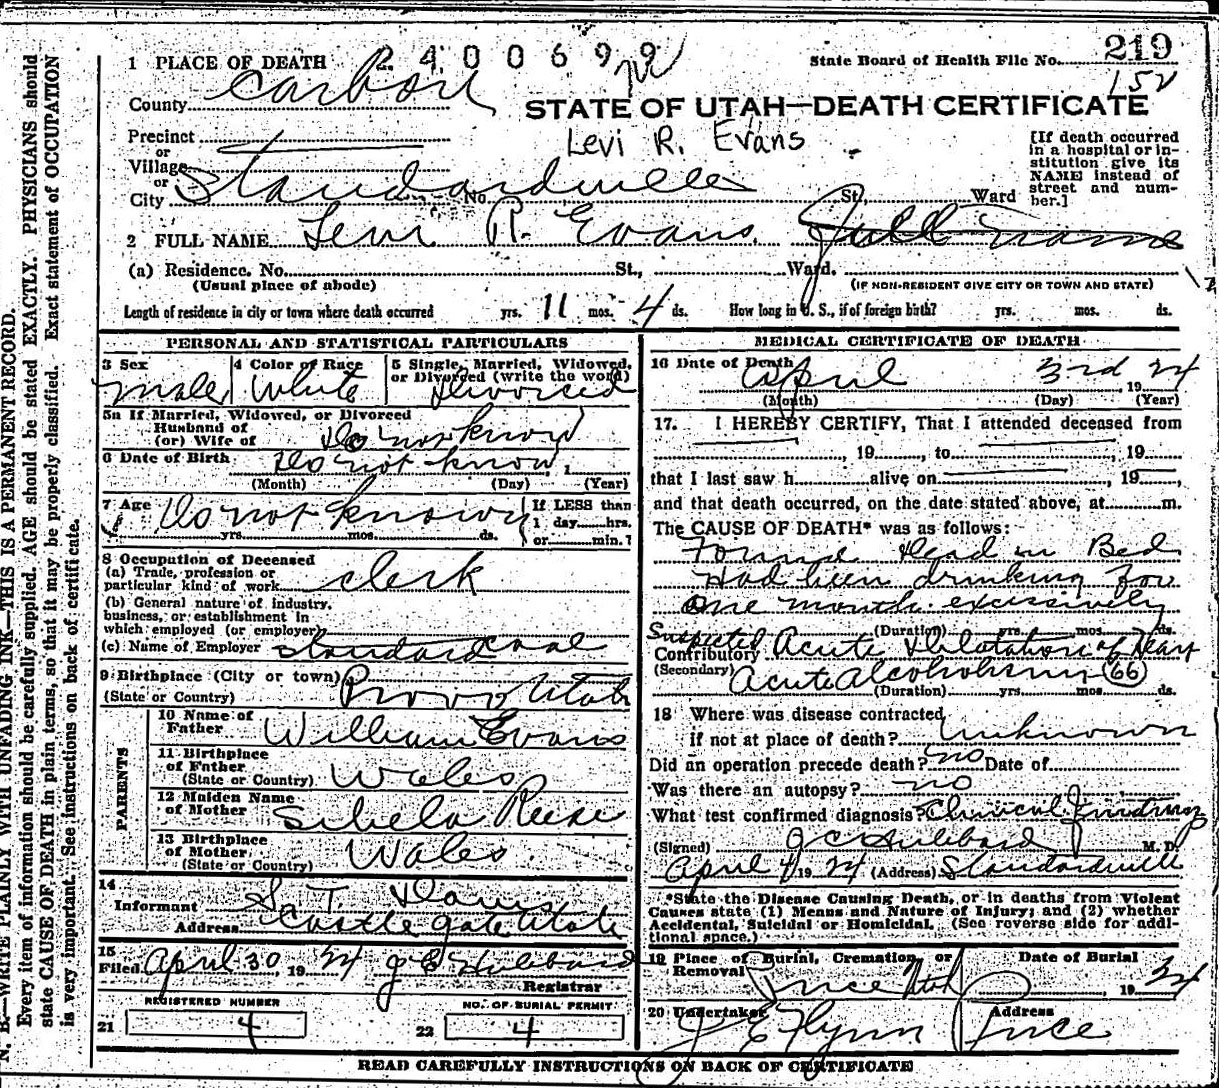 N. B.—WRITE PLAINLY WITH UNFADING INK—THIS IS A PERMANENT RECORD.
Every item of information should be carefully supplied. AGE should be stated EXACTLY. PHYSICIANS should
state CAUSE OF DEATH in plain terms, so that it may be properly classified. Exact statement of OCCUPATION
is very important. See instructions on back of certificate.
2400699
State Board of Health File No. 219
152
1 PLACE OF DEATH
County Carbon
STATE OF UTAH—DEATH CERTIFICATE
Levi R. Evans
Precinct
or
Village
or
City Standardville No. St., Ward
[If death occurred
in a hospital or in-
stitution give its
NAME instead of
street and num-
ber.]
2 FULL NAME Levi R. Evans Full Name
(a) Residence. No. St., Ward.
(Usual place of abode) (IF NON-RESIDENT GIVE CITY OR TOWN AND STATE)
Length of residence in city or town where death occurred yrs. 11 mos. 4 ds. How long in U. S., if of foreign birth? yrs. mos. ds.
PERSONAL AND STATISTICAL PARTICULARS
3 Sex 4 Color of Race 5 Single, Married, Widowed,
or Divorced (write the word)
male White Divorced
5a If Married, Widowed, or Divorced
Husband of
(or) Wife of Do not know
6 Date of Birth Do not know
(Month) (Day) (Year)
7 Age Do not know If LESS than
1 day hrs.
yrs. mos. ds. or min.?
8 Occupation of Deceased
(a) Trade, profession or
particular kind of work clerk
(b) General nature of industry,
business, or establishment in
which employed (or employer)
(c) Name of Employer Standard Coal
9 Birthplace (City or town) Provo Utah
(State or Country)
PARENTS
10 Name of
Father William Evans
11 Birthplace
of Father
(State or Country) Wales
12 Maiden Name
of Mother Sibela Reese
13 Birthplace
of Mother
(State or Country) Wales
14
Informant S. T. Davis
Address Castle gate Utah
15
Filed April 30 1924 J E Hubbard
Registrar
REGISTERED NUMBER NO. OF BURIAL PERMIT
21 4 22 4
MEDICAL CERTIFICATE OF DEATH
16 Date of Death April 3rd 1924
(Month) (Day) (Year)
17. I HEREBY CERTIFY, That I attended deceased from
, 19 , to , 19
that I last saw h alive on , 19 ,
and that death occurred, on the date stated above, at m.
The CAUSE OF DEATH* was as follows:
Found Dead in Bed
Had been drinking for
One month excessively
(Duration) yrs. mos. ds.
Suspected
Contributory Acute Dilatation of Heart
(Secondary) Acute Alcoholism 66
(Duration) yrs. mos. ds.
18 Where was disease contracted
if not at place of death? Unknown
Did an operation precede death? no Date of
Was there an autopsy? no
What test confirmed diagnosis? Clinical
(Signed) J C Hubbard M. D.
April 4 1924 (Address) Standardville
*State the Disease Causing Death, or in deaths from Violent
Causes state (1) Means and Nature of Injury; and (2) whether
Accidental, Suicidal or Homicidal. (See reverse side for addi-
tional space.)
19 Place of Burial, Cremation, or Date of Burial
Removal
Price Utah 1924
20 Undertaker Address
J E Flynn Price
READ CAREFULLY INSTRUCTIONS ON BACK OF CERTIFICATE